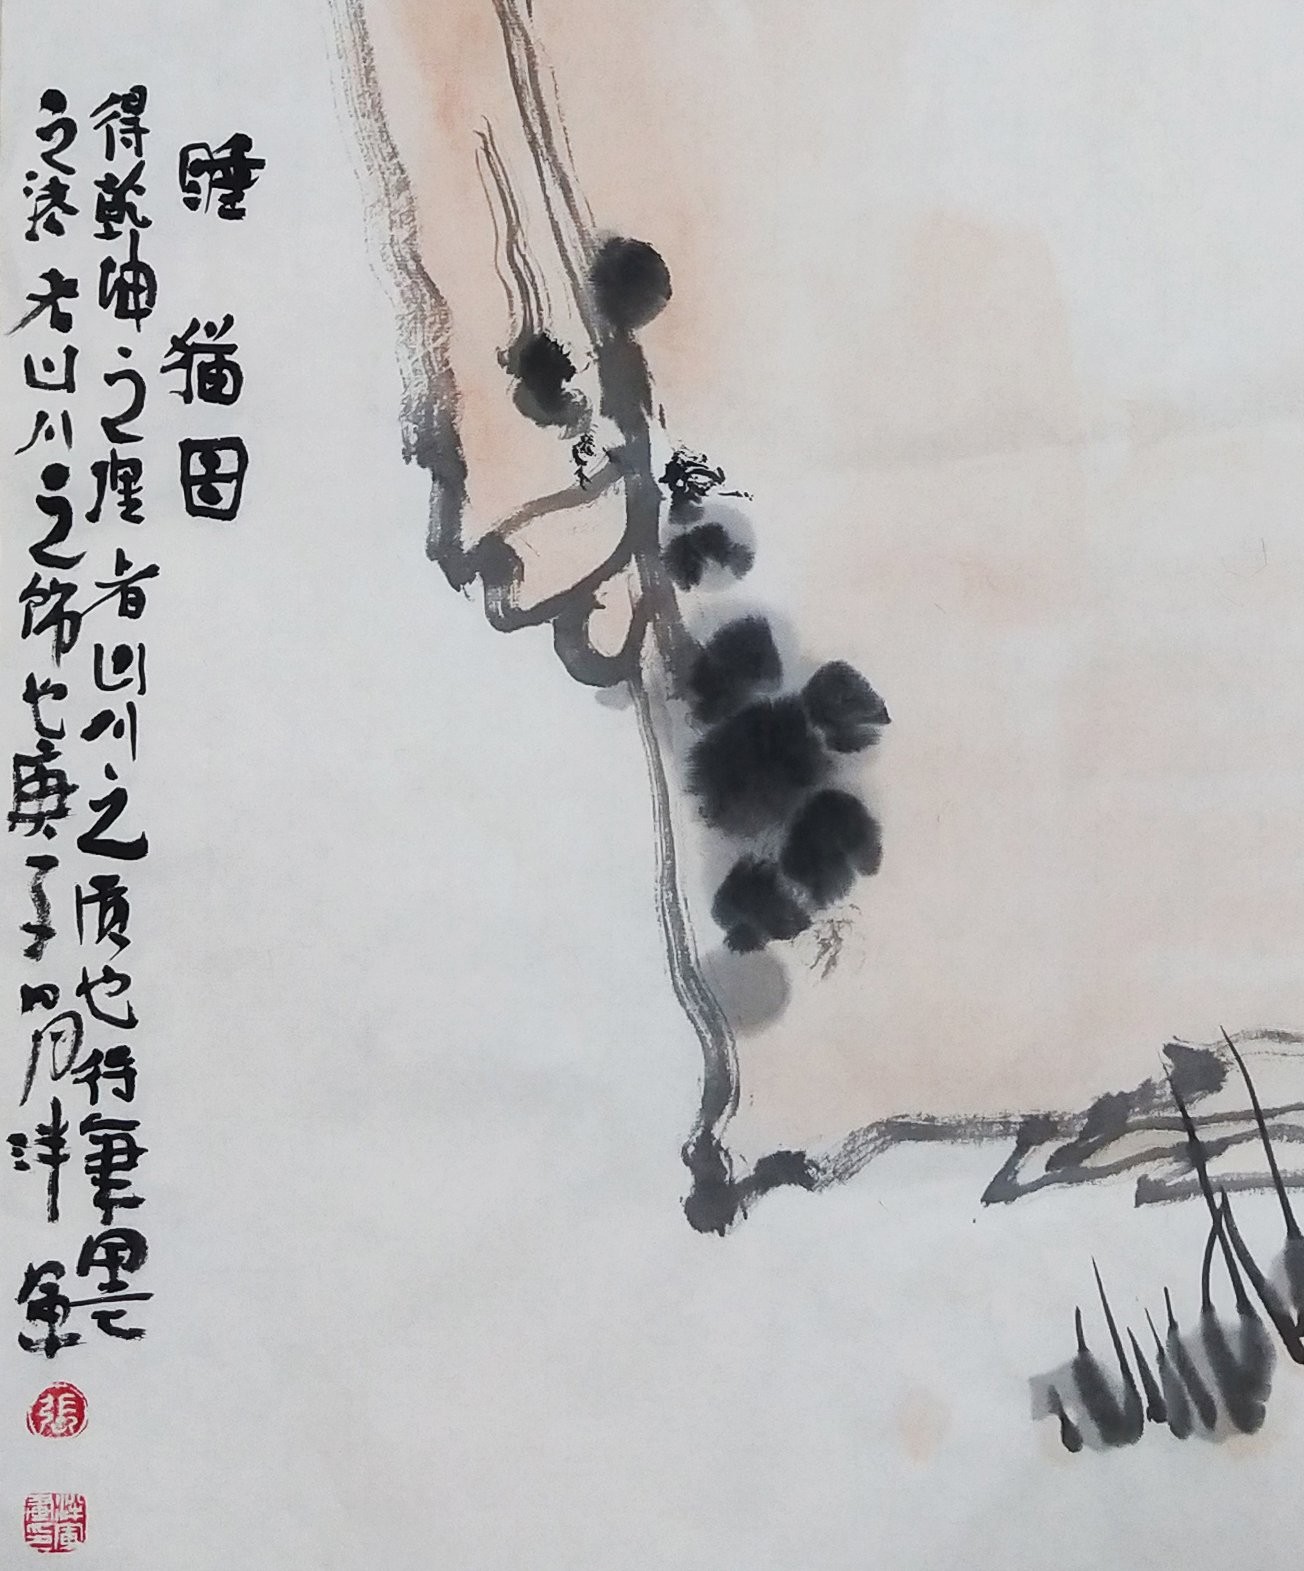 睡猫图
得乾坤之理者山川之质也行笔墨
之法者山川之饰也庚子 洋军
張